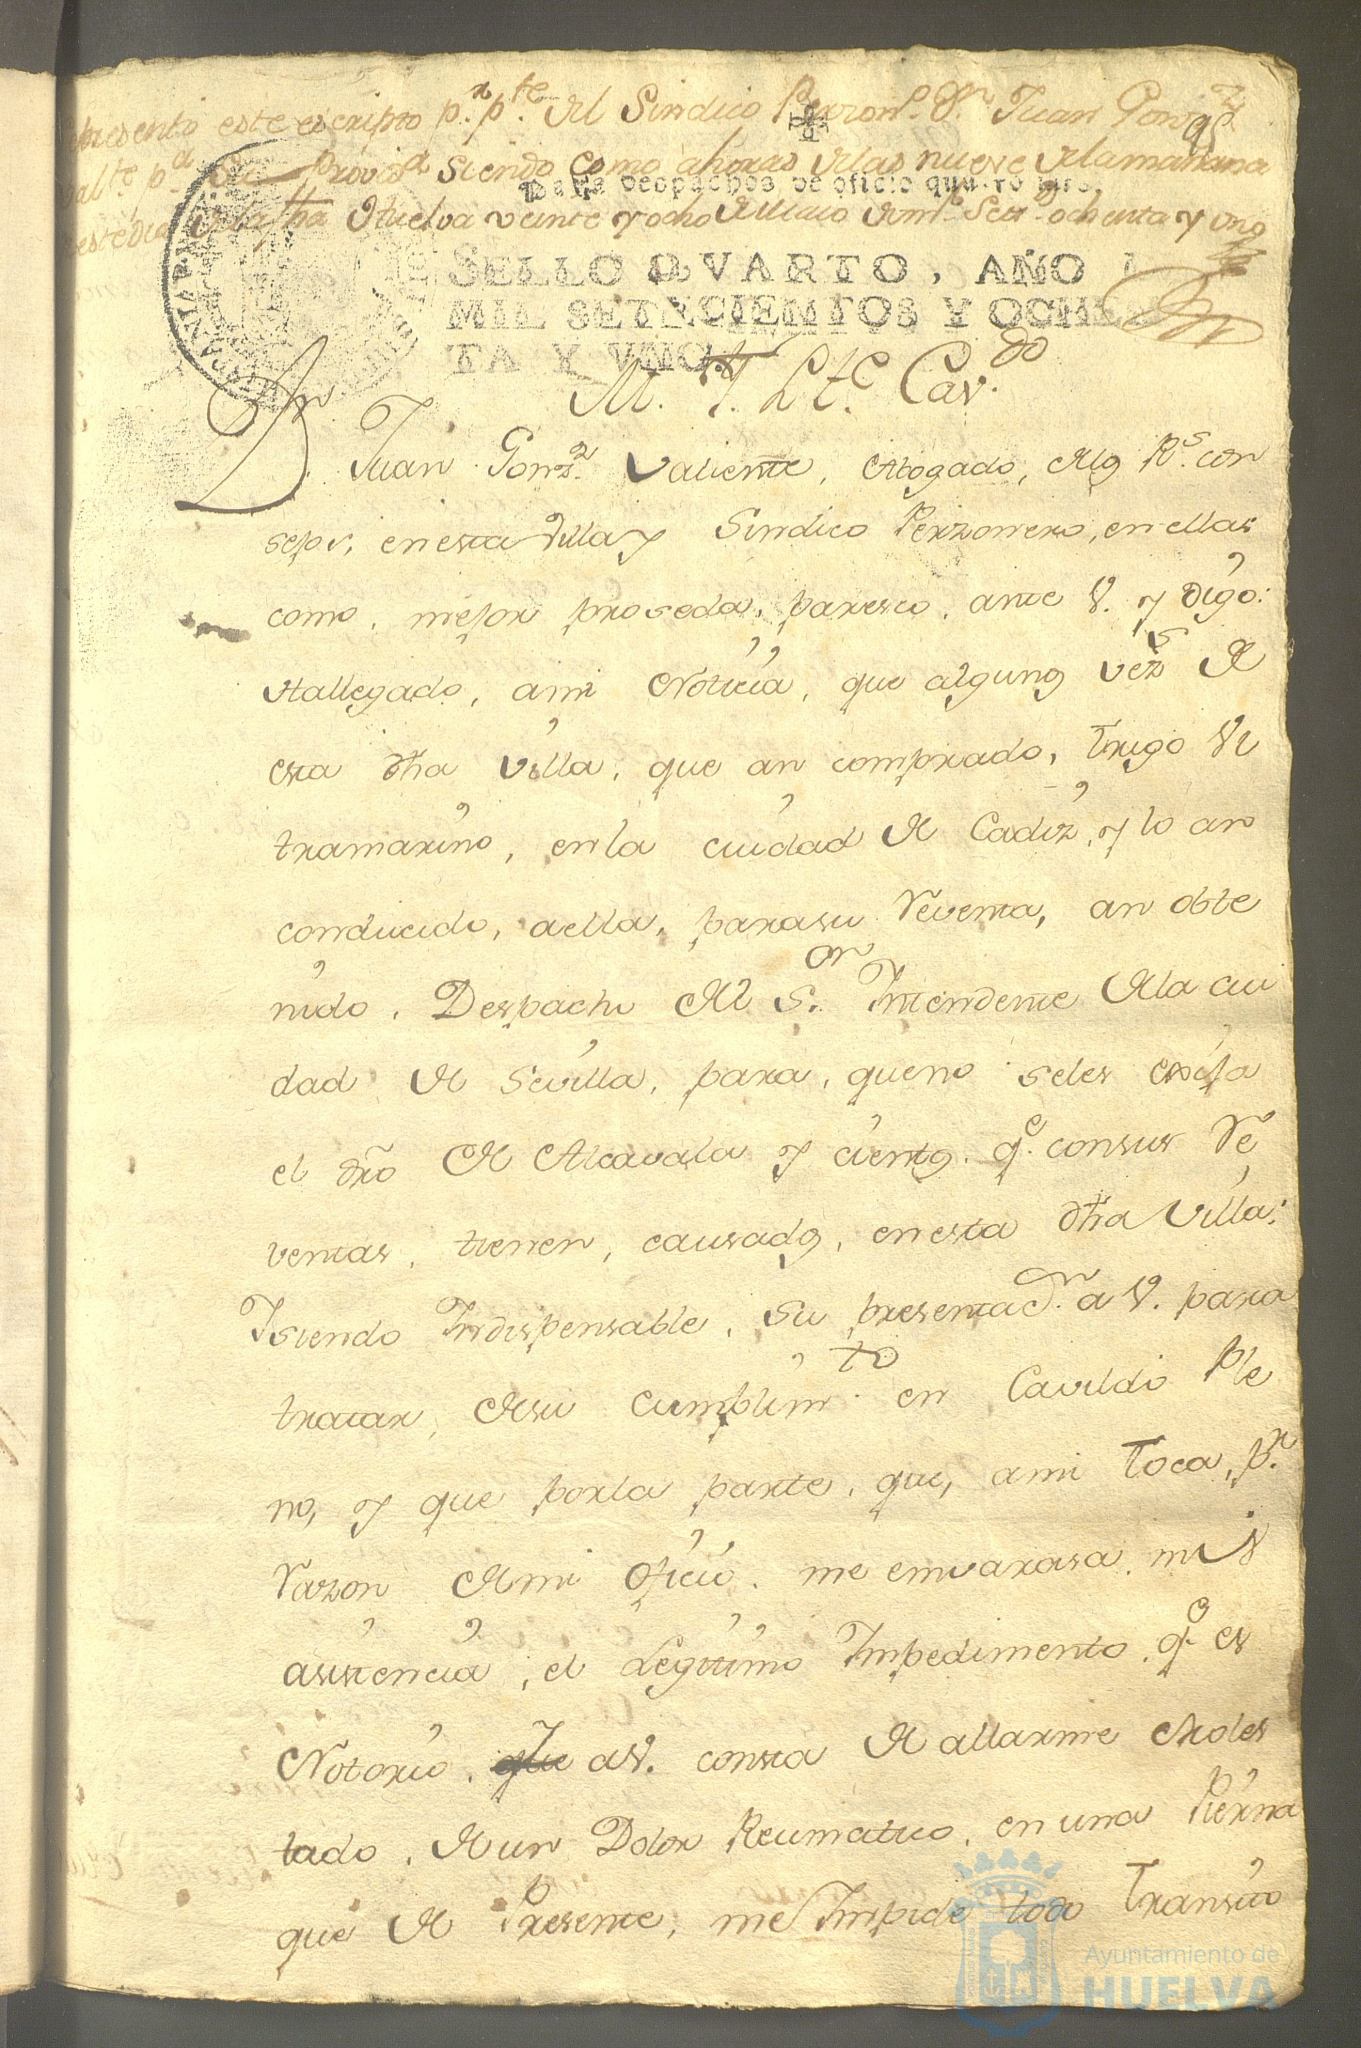 presento este escripto p.r p.te del Sindico Perzon.o D.n Juan Gonz.z
Val.te p.a su Provis.n siendo como ahoras delas nueve dela mañana
Para despachos de oficio quatro mrs.
este dia dela fha Huelva veinte y ocho de Maio de mil Set.s ochenta y uno
SELLO QVARTO, AÑO
MIL SETECIENTOS Y OCHEN
TA Y VNO.
M. Y. Ltte. Cav.do
D.n Juan Gonz.z Valiente, Abogado, delos R.s con
sejos, en esta Villa y Sindico Perzonero, en ella
como, mejor proseda, paresco, ante V. y Digo:
Hallegado, ami Noticia, que algunos vez.s de
esta dha Villa, que an comprado, trigo Vl
tramarino, enla ciudad de Cadiz, y lo an
conducido, aella, parasu Reventa, an obte
nido, Despacho del S.or Intendente dela ciu
dad de Sevilla, para, queno seles exija
el dro de Alcavala y cientos q.e consus Re
ventas, tienen, causados, enesta dha Villa:
Y siendo Indispensable, su presentac.on a V. para
tratar, desu cumplim.to en Cavildo Ple
no, y que porla parte, que, ami toca, p.r
razon de mi oficio, me emvarasa, mi
asistencia, el Legitimo Impedimento, q.e es
Notorio, que a V. consta de allarme Moles
tado, de un Dolor Reumatico, en una Pierna
que de Presente, me Impide todo transito
Ayuntamiento de
HUELVA